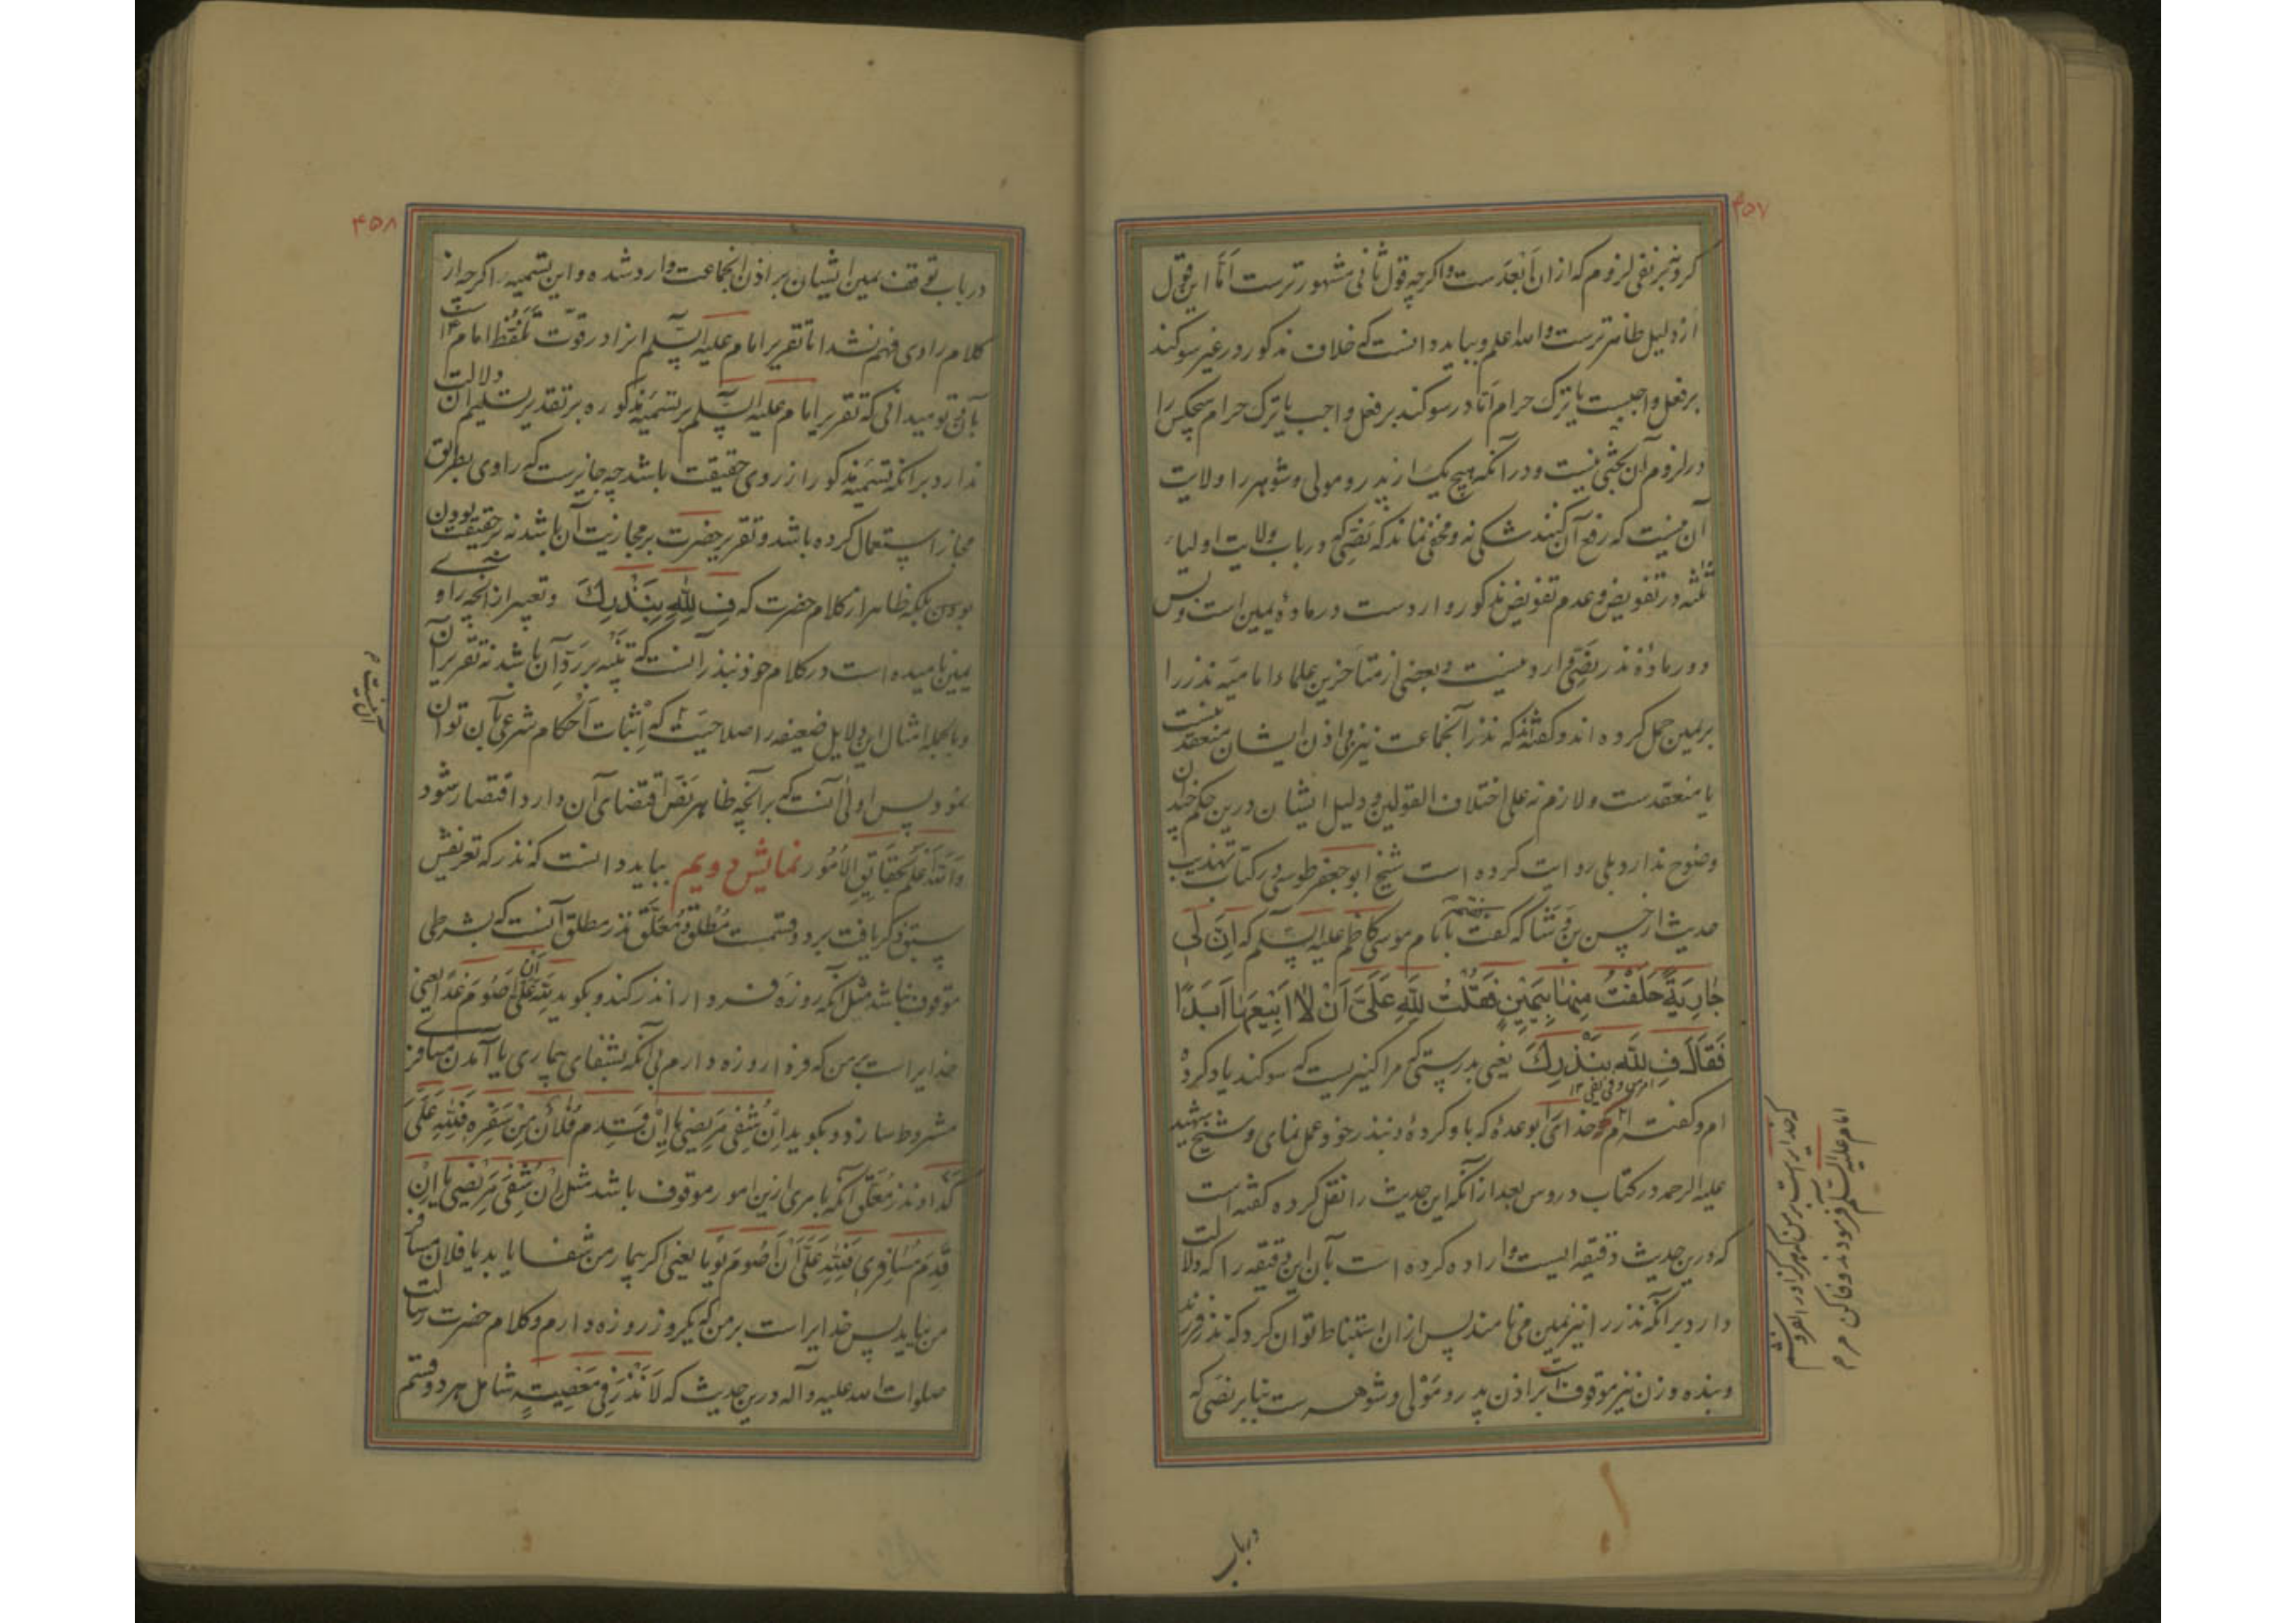 ۴۵۷
کرو نیز نفی لزوم که از ان ابعدست و اگرچه قول ثانی مشهورترست امّا این قول
از دلیل ظاهرترست والله اعلم و بباید دانست که خلاف مذکور در غیر سوکند
بر فعل واجبست یا ترک حرام امّا در سوکند بر فعل واجب یا ترک حرام هیچکس را
در لزوم آن بحثی نیست و در آنکه هیچ یک از پدر و مولی و شوهر را ولایت
آن نیست که رفع آن کنند شکی نه و مخفی نماند که نصّی که در باب ولایت اولیاء
ثلثه در تفویض و عدم تفویض مذکور وارد ست در مادهٔ یمین است و بس
و در مادهٔ نذر نصّی وارد نیست و بعضی از متأخرین علماء امامیّه نذر را
بر یمین حمل کرده اند و کفته‌اند که نذر آنجماعت نیز بی اذن ایشان منعقد نیست
یا منعقدست و لازم نه علی اختلاف القولین و دلیل ایشان درین حکم چندان
وضوح ندارد بلی روایت کرده است شیخ ابوجعفر طوسی در کتاب تهذیب
حدیث از حسن بن وشّا که کفت با امام موسی کاظم علیه السلم که اِنَّ لی
جارِیَةً حَلَفْتُ مِنها بِیَمینٍ فَقُلْتُ لِلّهِ عَلَیَّ اَنْ لا اَبیعَها اَبَدًا
فَقالَ فِ لِلّهِ بِنَذْرِکَ یعنی بدرستی که مرا کنیزیست که سوکند یاد کرده
ام و کفته ام خدای بوعدهٔ که باو کردهٔ و بنذر خود عمل نمای و شیخ شهید
علیه الرحمه در کتاب دروس بعد از آنکه این حدیث را نقل کرده کفته است
که درین حدیث دقیقه ایست و اراده کرده است بآن این دقیقه را که دلالت
دارد بر آنکه نذر را نیز یمین می نامند پس از ان استنباط توان کرد که نذر فرزند
و بنده و زن نیز موقوف است بر اذن پدر و مولی و شوهرست بنابر نصّی که
که خدایراست بر من که هرکز او را نفروشم
امام علیه السلم فرمودند وفا کن
در باب
۴۵۸
در باب توقف یمین ایشان بر اذن آنجماعت وارد شده و این تسمیه را کرچه از
کلام راوی فهم نشد امّا تقریر امام علیه السلم انرا در قوّت تلفّظ امام است
بآن و تو میدانی که تقریر امام علیه السلم بر تسمیهٔ مذکوره بر تقدیر تسلیم آن دلالت
ندارد بر آنکه تسمیهٔ مذکور از روی حقیقت باشد چه جایزست که راوی بطریق
مجاز استعمال کرده باشد و تقریر حضرت بر مجازیت آن باشد نه بر حقیقت بودن
بودن بلکه ظاهر از کلام حضرت که فِ لِلّهِ بِنَذْرِکَ و تعبیر از آنچه راوی
یمین نامیده است در کلام خود بنذر آنست که تنبیه بر ردّ آن باشد نه تقریر آن
و بالجمله امثال این دلایل ضعیفه را صلاحیّت که اثبات احکام شرعی بآن توان
آن نیست
نمود پس اولی آنست که بر آنچه ظاهر نصّ اقتضای آن دارد اقتصار شود
وَاللّهُ اَعْلَمُ بِحَقایِقِ الاُمُور نمایش دویم بباید دانست که نذر که تعریفش
سبق ذکر یافت بر دو قسمست مُطْلَق و مُعَلَّق نذر مطلق آنست که بشرطی
موقوف نباشد مثل آنکه روزه فردا را نذر کند و بکوید لِلّهِ عَلَیَّ اَن اَصُومَ غَدًا یعنی
خدایراست بر من که فردا روزه دارم بی آنکه بشفای بیماری یا آمدن مسافری
مشروط سازد و بکوید اِنْ شُفِیَ مَریضی یا اِنْ قَدِمَ فُلانٌ مِنْ سَفَرِهِ فَلِلّهِ عَلَیَّ
کَذا و نذر مُعَلَّق آنکه بامری ازین امور موقوف باشد مثل اِنْ شُفِیَ مَریضی یا اِنْ
قَدِمَ مُسافِری فَلِلّهِ عَلَیَّ اَنْ اَصُومَ یَومًا یعنی اکر بیمار من شفا یابد یا فلان مسافر
من بیاید پس خدایراست بر من که یکروز روزه دارم و کلام حضرت رسالت
صلوات الله علیه و آله درین حدیث که لا نَذْرَ فی مَعْصِیَةٍ شامل هر دو قسم